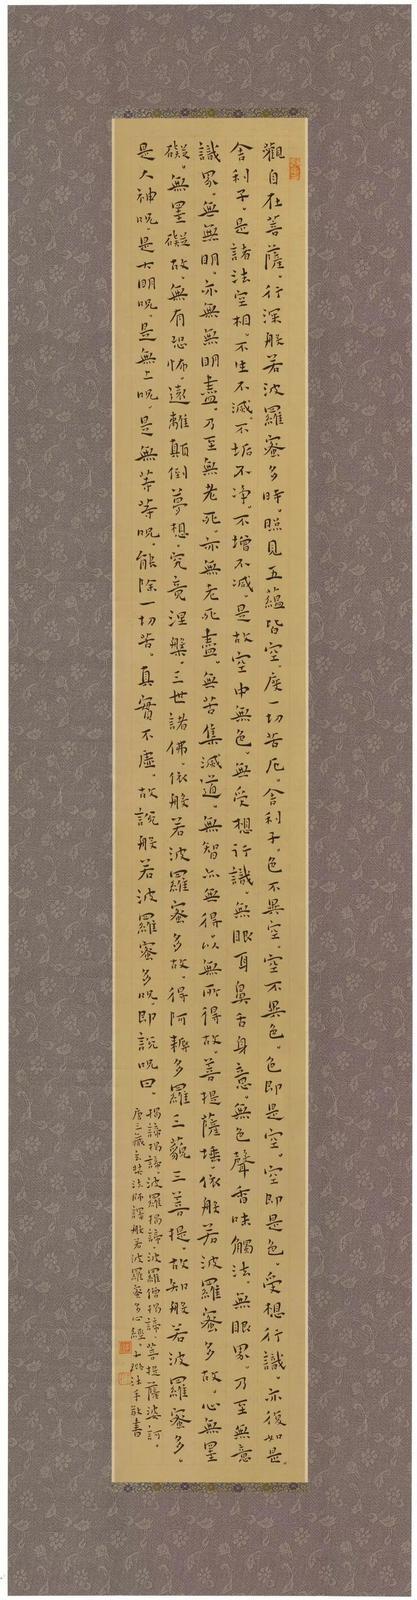 觀自在菩薩。行深般若波羅蜜多時。照見五蘊皆空。度一切苦厄。舍利子。色不異空。空不異色。色即是空。空即是色。受想行識。亦復如是。
舍利子。是諸法空相。不生不滅。不垢不净。不增不減。是故空中無色。無受想行識。無眼耳鼻舌身意。無色聲香味觸法。無眼界。乃至無意
識界。無無明。亦無無明盡。乃至無老死。亦無老死盡。無苦集滅道。無智亦無得。以無所得故。菩提薩埵。依般若波羅蜜多故。心無罣
礙。無罣礙故。無有恐怖。遠離顛倒夢想。究竟涅槃。三世諸佛。依般若波羅蜜多故。得阿耨多羅三藐三菩提。故知般若波羅蜜多。
是大神呪。是大明呪。是無上呪。是無等等呪。能除一切苦。真實不虛。故說般若波羅蜜多呪。即說呪曰。
揭諦揭諦。波羅揭諦。波羅僧揭諦。菩提薩婆訶。
唐三藏玄奘法師譯般若波羅蜜多心經。敬書